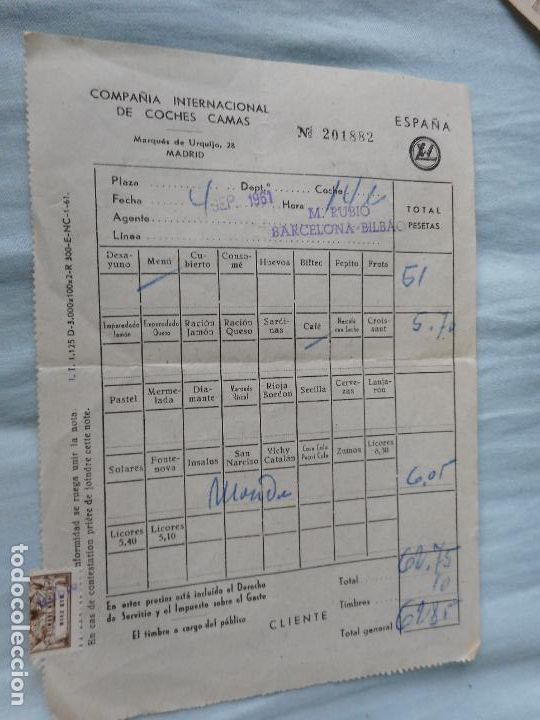 COMPAÑIA INTERNACIONAL
DE COCHES CAMAS
Marqués de Urquijo, 28
MADRID
Nº 201882
ESPAÑA
Plaza Dept.º Coche 14
Fecha 4 SEP. 1961 Hora
Agente M. RUBIO
Línea BARCELONA-BILBAO
TOTAL
PESETAS
Desayuno Menú Cubierto Consomé Huevos Biftec Pepito Fruta
51
Emparedado Jamón Emparedado Queso Ración Jamón Ración Queso Sardinas Café Mezcla con Leche Croissant
5.70
Pastel Mermelada Diamante Marqués Riscal Rioja Bordon Sevilla Cervezas Lanjarón
Solares Fontenova Insalus San Narciso Vichy Catalán Coca Cola Pepsi Cola Zumos Licores 6,30
6.05
Licores 5,40 Licores 5,10
En estos precios está incluido el Derecho
de Servicio y el Impuesto sobre el Gasto
El timbre a cargo del público
CLIENTE
Total 62.75
Timbres 10
Total general 62.85
I. T. 1.125 D-3.000x100x2-R 300-E-NC-1-61.
conformidad se ruega unir la nota.
En cas de contestation prière de joindre cette note.
todocoleccion